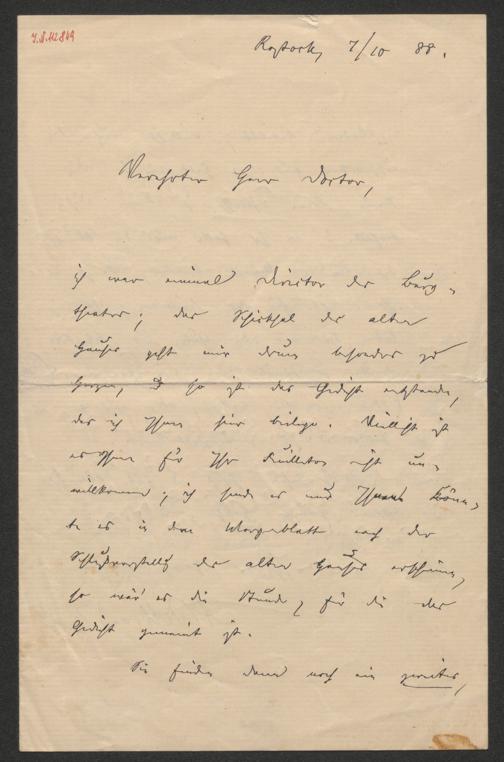 I.N. 112849
Rostock, 7/10 88.
Verehrter Herr Doctor,
ich war einmal Director des Burg-
theaters; das Schicksal des alten
Hauses geht mir drum besonders zu
Herzen, so ist das Gedicht entstanden,
das ich Ihnen hier beilege. Vielleicht ist
es Ihnen für Ihr Feuilleton nicht un-
willkommen; ich sende es nur Ihnen. Könn-
te es in dem Morgenblatt nach der
Schlußvorstellung des alten Hauses erscheinen,
so wär' es die Stunde, für die das
Gedicht gemeint ist.
Sie finden dann noch ein zweites,